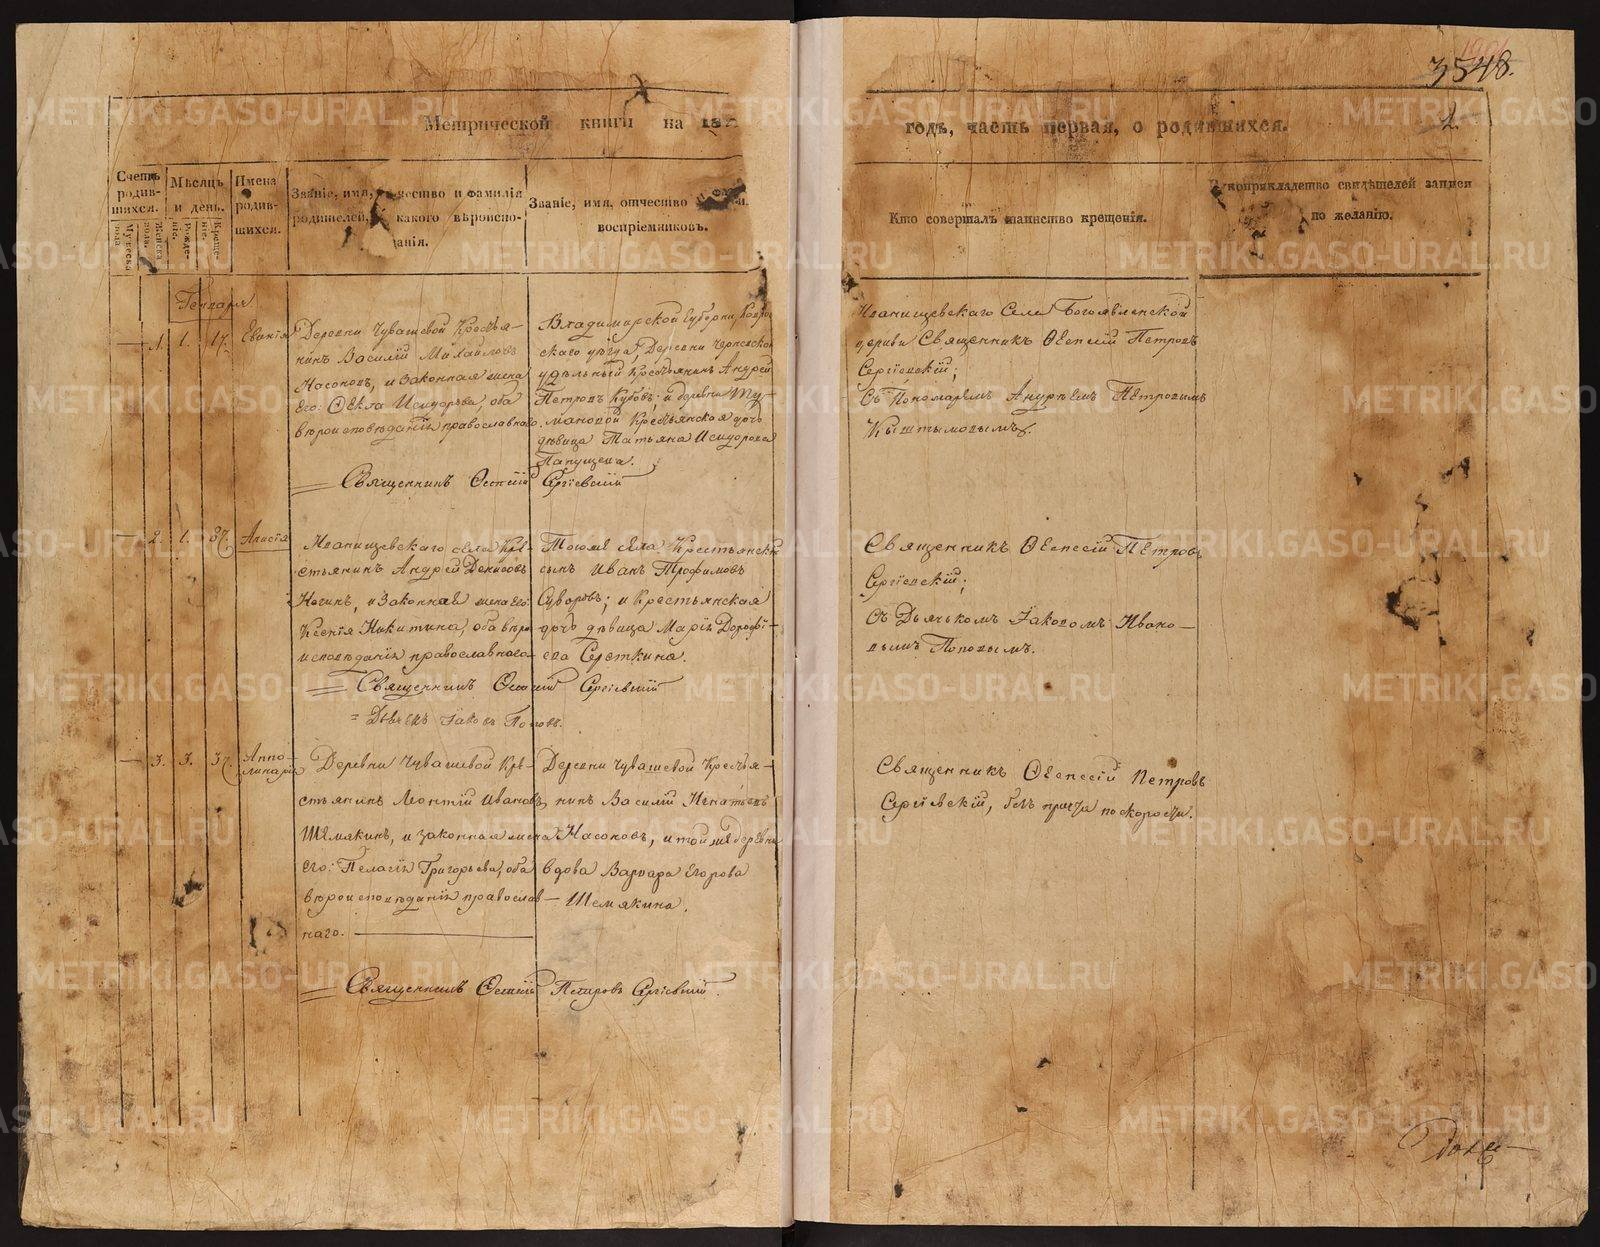 3548.
2.
Метрической книги на 18
годъ, часть первая, о родившихся.
Счетъ родив-шихся.
Мужеска пола.
Женска пола.
Мѣсяцъ и день.
Рожде-нія.
Креще-нія.
Имена родив-шихся.
Званіе, имя, отчество и фамилія
родителей, какого вѣроиспо-
данія.
Званіе, имя, отчество
воспріемниковъ.
Кто совершалъ таинство крещенія.
Рукоприкладство свидѣтелей записи
по желанію.
Генваря
1. 1. 17. Евгенія
Деревни Чувашевой Крестья-
нинъ Василій Михайловъ
Насоновъ, и законная жена
Его: Ѳекла Исидорова, оба
вѣроисповѣданія православнаго.
Владимирской Губерніи,
скаго уѣзда, Деревни
удѣльный Крестьянинъ Андрей
Петровъ Кубовъ; и деревни Ту-
мановой Крестьянская дочь
дѣвица Татьяна Исидорова
Папущева.
Священникъ Сергіевскій
Иванищевскаго Села Богоявленской
церкви Священникъ Петровъ
Сергіевскій;
Съ Пономаремъ Андреемъ Петровымъ
Кыштымовымъ.
2. 1. 37.
Иванищевскаго села Кре-
стьянинъ Андрей Денисовъ
Ногинъ, и Законная жена Его:
Ксенія Никитина, оба вѣро-
исповѣданія православнаго
Тогоже Села Крестьянскій
сынъ Иванъ Трофимовъ
Суворовъ; и Крестьянская
дочь дѣвица Марія Дорофѣ-
ева Сереткина.
Священникъ Сергіевскій
= Дьячекъ Іаковъ Поповъ.
Священникъ Петровъ
Сергіевскій;
Съ Дьячкомъ Іаковомъ Ивано-
вымъ Поповымъ.
3. 3. 37. Аппо-
линарія
Деревни Чувашевой Кре-
стьянинъ Леонтій Ивановъ
Шемякинъ, и законная жена
Его: Пелагія Григорьева, оба
вѣроисповѣданія православ-
наго.
Деревни Чувашевой Крестья-
нинъ Василій Игнатьевъ
Насоновъ, и той же деревни
вдова Варвара Егорова
Шемякина.
Священникъ Петровъ Сергіевскій.
Священникъ Петровъ
Сергіевскій, безъ причта по скорости.
METRIKI.GASO-URAL.RU